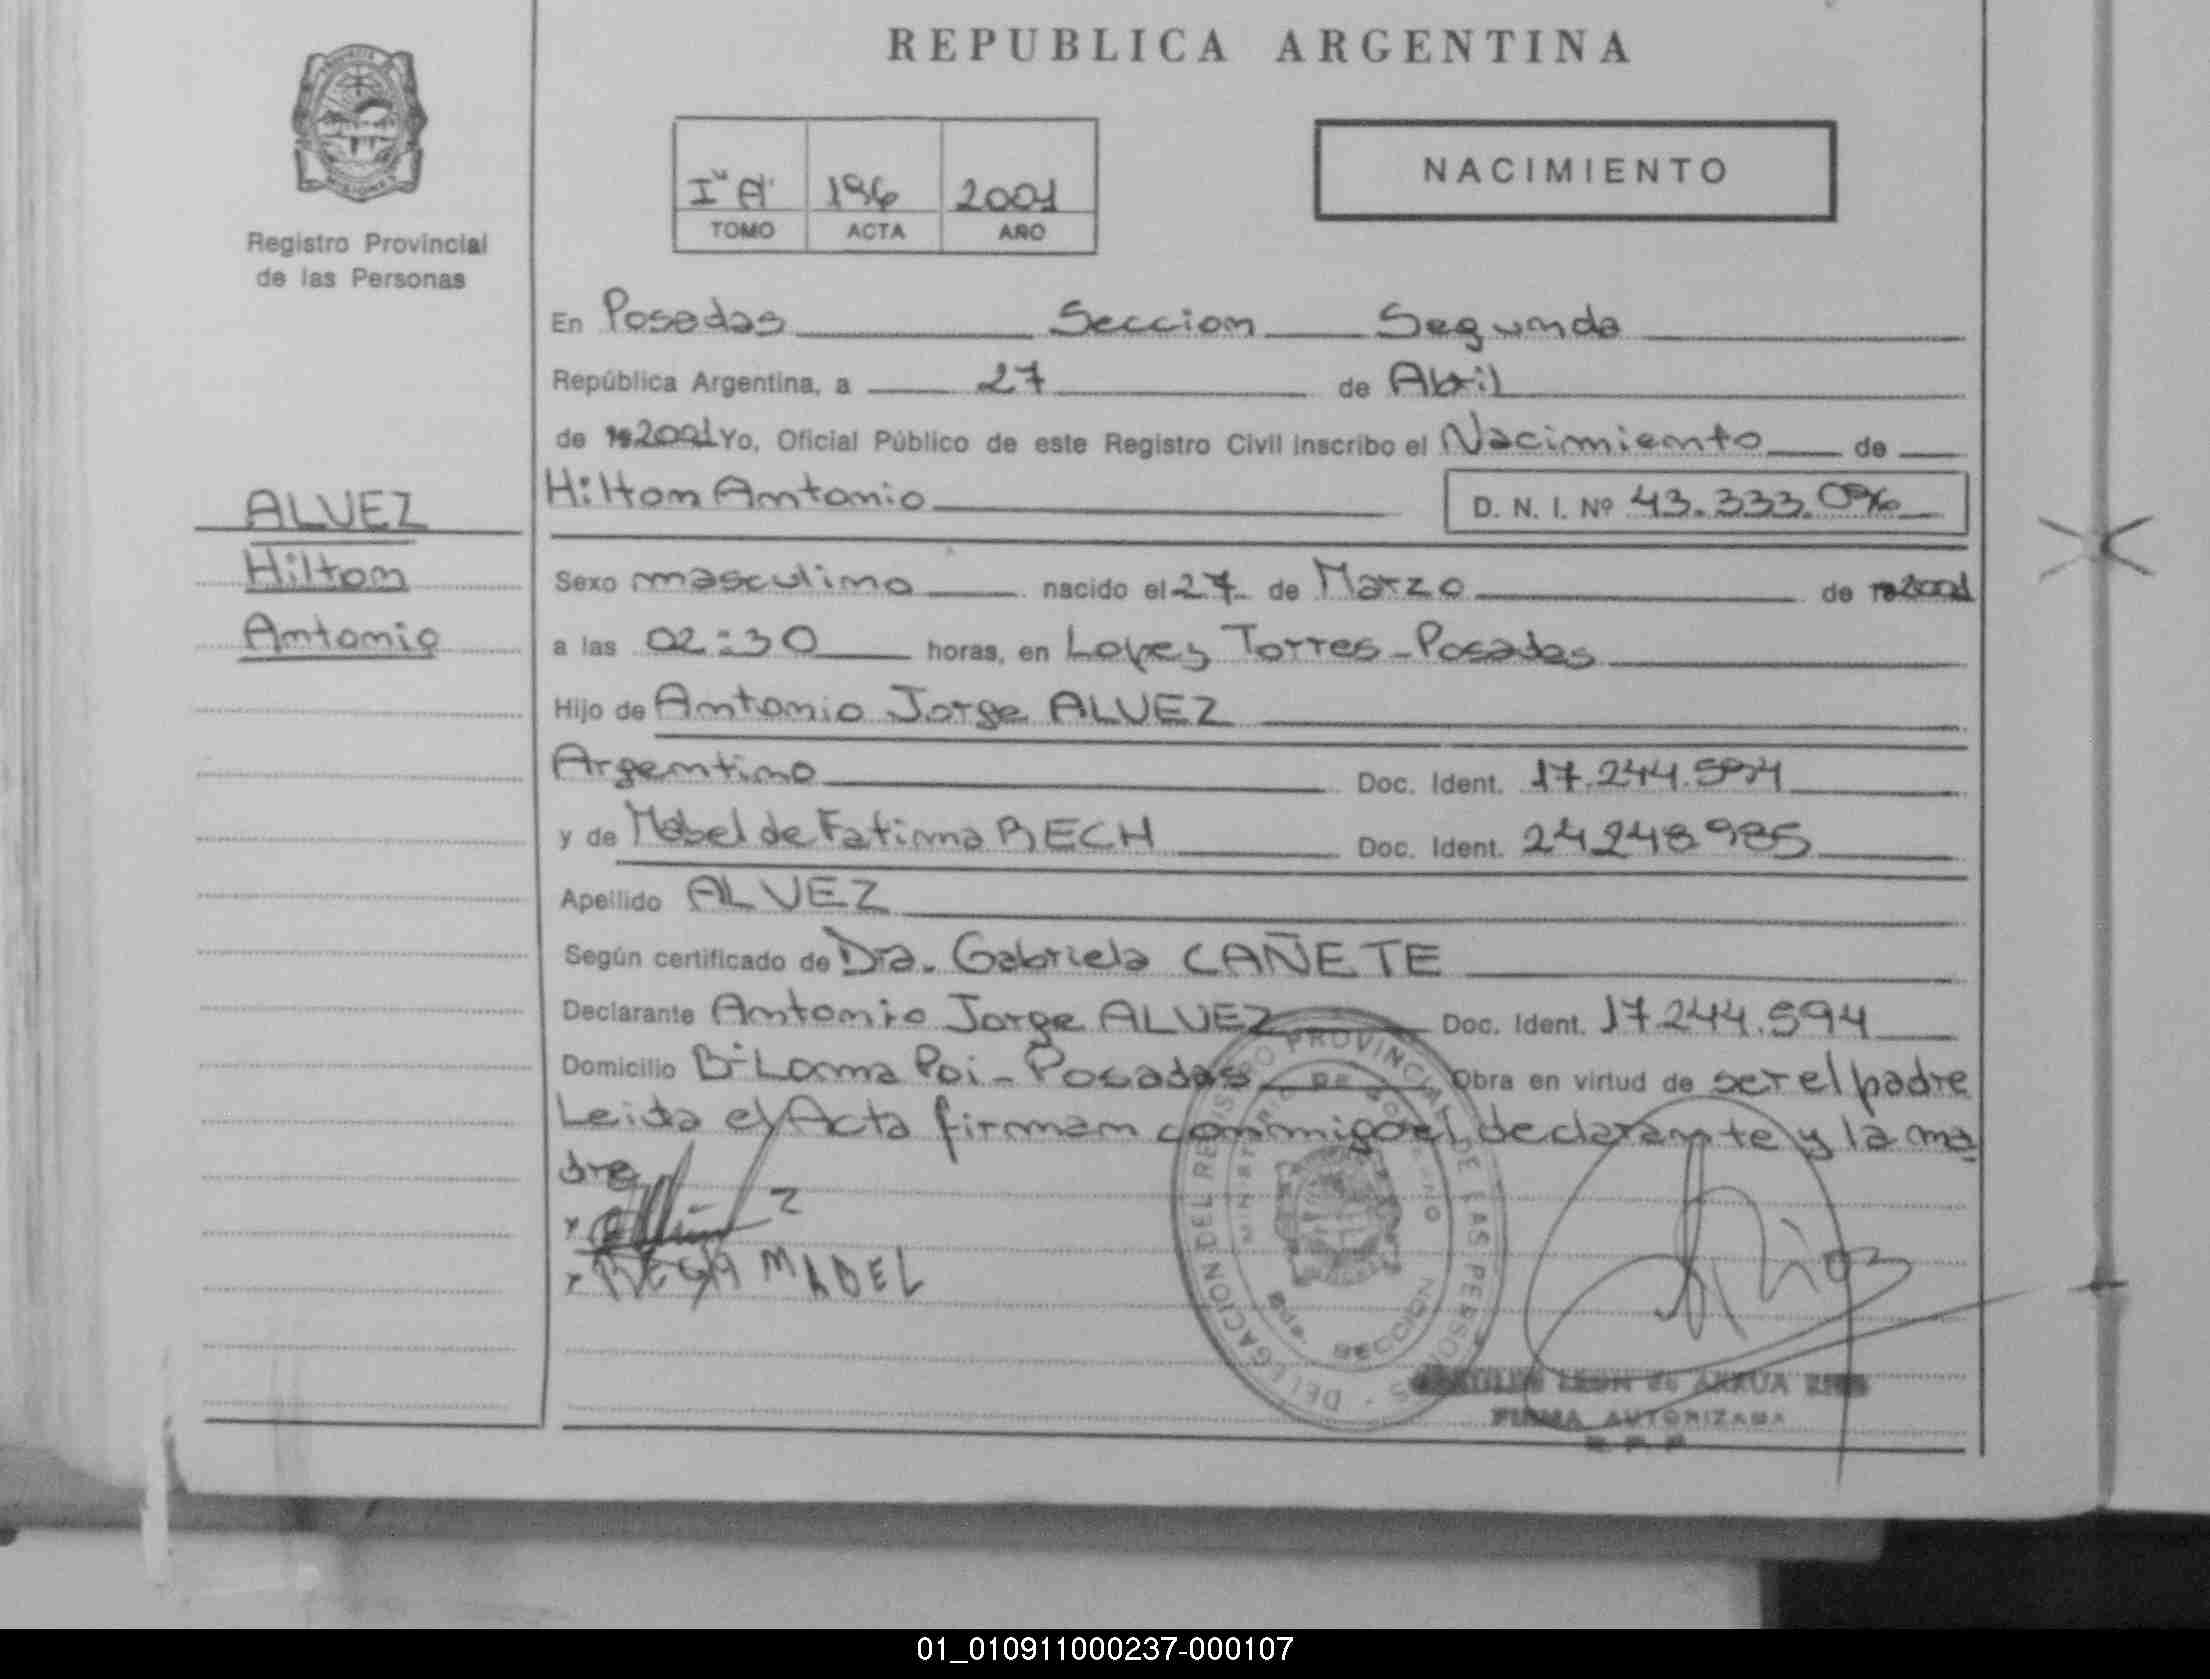 REPUBLICA ARGENTINA
Registro Provincial
de las Personas
I "A" 196 2001
TOMO ACTA AÑO
NACIMIENTO
En Posadas Seccion Segunda
República Argentina, a 27 de Abril
de 2001 Yo, Oficial Público de este Registro Civil inscribo el Nacimiento de
Hilton Antonio D. N. I. Nº 43.333.096
ALVEZ
Hilton
Antonio
Sexo masculino nacido el 27 de Marzo de 2001
a las 02:30 horas, en Lopez Torres - Posadas
Hijo de Antonio Jorge ALVEZ
Argentino Doc. Ident. 17.244.594
y de Mabel de Fatima BECH Doc. Ident. 24248985
Apellido ALVEZ
Según certificado de Dra. Gabriela CAÑETE
Declarante Antonio Jorge ALVEZ Doc. Ident. 17244.594
Domicilio Bº Loma Poi - Posadas Obra en virtud de ser el padre
Leida el Acta firman conmigo el declarante y la ma
dre
MABEL
DELEGACION DEL REGISTRO PROVINCIAL DE LAS PERSONAS
MINISTERIO DE GOBIERNO
SECCION
FIRMA AUTORIZADA
R. P. P.
01_010911000237-000107